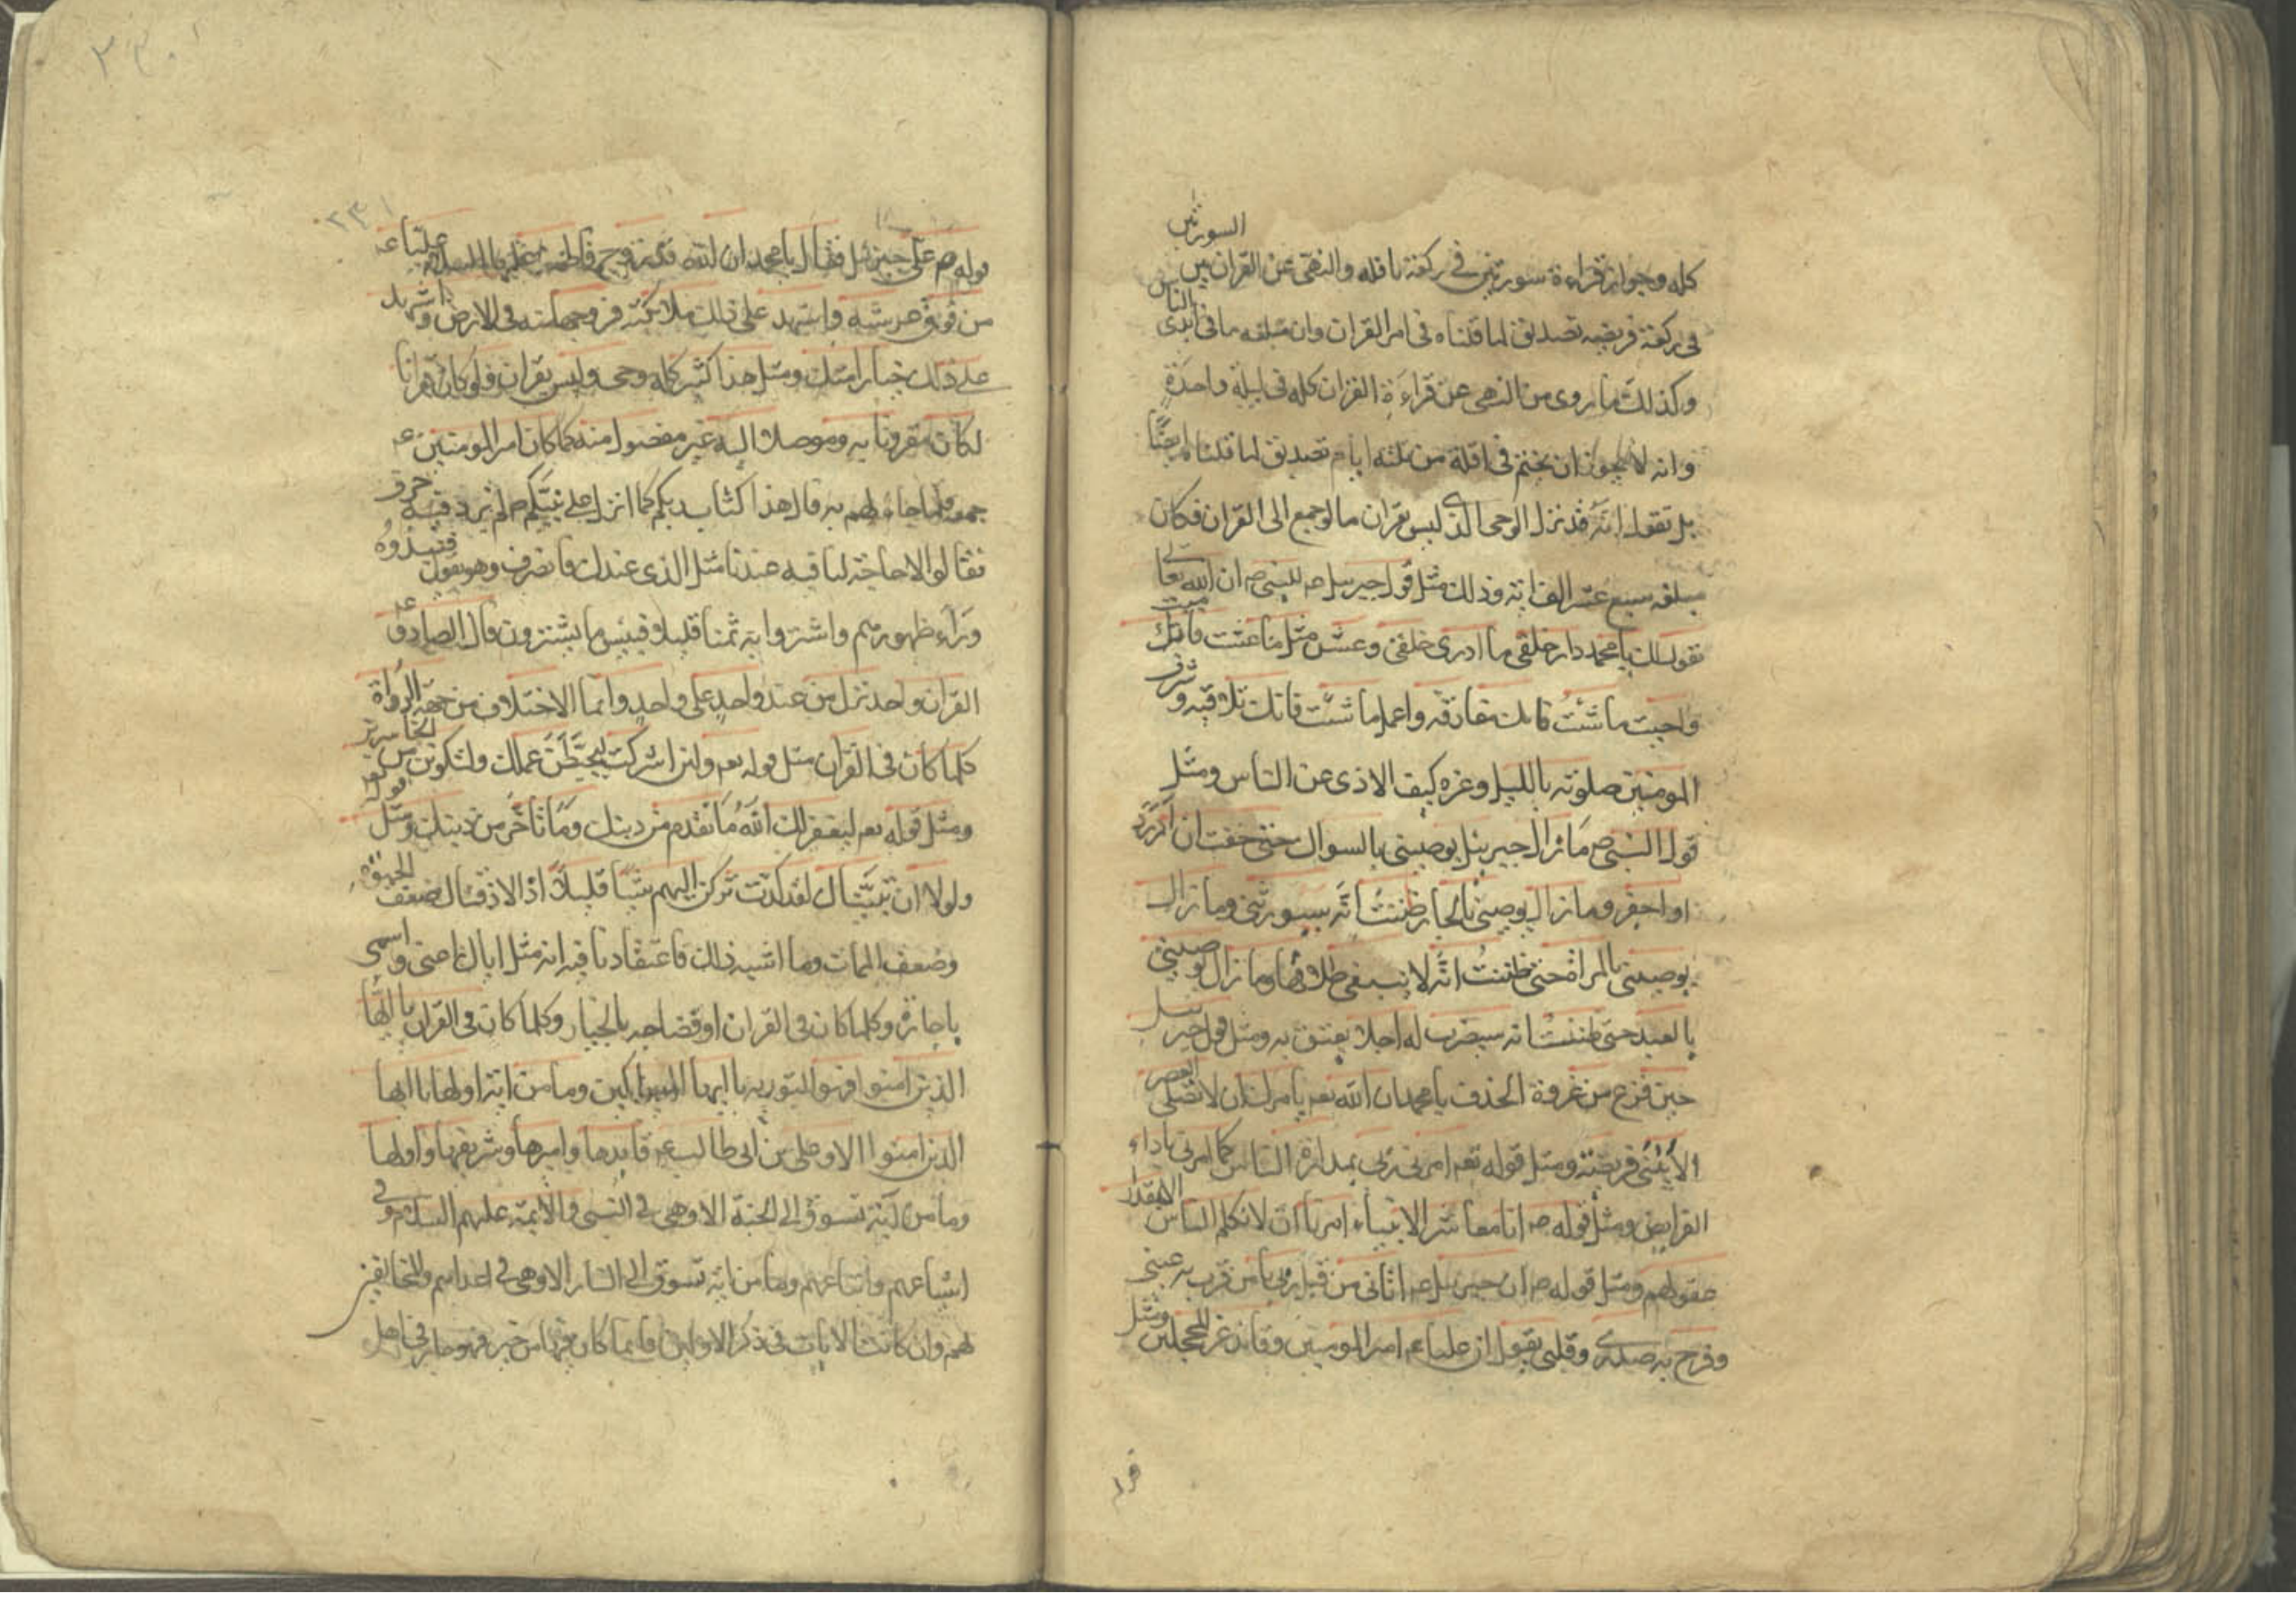 السورتين
كله وجواز قراءة سورتين في ركعة نافله والنهى عن القران بين
في ركعة فريضه تصديق لما قلناه في امر القران وان مبلغه ما في ايدى الناس
وكذلك ما روى من النهى عن قراءة القران كله في ليلة واحدة
وانه لا يجوز ان يختم في اقلة من ثلثه ايام تصديق لما قلناه ايضًا
بل نقول انه قد نزل الوحى الذي ليس بقران ما لو جمع الى القران فكان
مبلغه سبع عشر الف اية وذلك مثل قول جبرييل عم للنبى ص ان الله تعالى
يقول لك يا محمد دار خلقى ما ادرى خلقى وعش مثل ما عشت فانك ميت
واحبب ما شئت فانك مفارقه واعمل ما شئت فانك ملاقيه وشرف
المومنين صلوته بالليل وعزه كيف الاذى عن الناس ومثل
قول النبى ص ما زال جبرييل يوصينى بالسواك حتى خفت ان ادرد
او احفر وما زال يوصينى بالجار ظننت انه سيورثنى وما زال
يوصينى بالمراة حتى ظننت انه لا ينبغى طلاقها وما زال يوصينى
بالعبد حتى ظننت انه سيضرب له اجلا يعتق به ومثل قول جبرييل
حين فرغ من غزوة الخندق يا محمد ان الله تعم يامرك ان لا تصلى العصر
الا ببنى قريضة ومثل قوله تعم امرنى ربى بمداراة الناس كما امرنى باداء
الفرايض ومثل قوله ص انا معاشر الانبياء امرنا ان لا نكلم الناس الا بمقدار
عقولهم ومثل قوله ص ان جبرييل عم اتانى من قبل ربى بامر قرت به عينى
وفرح به صدرى وقلبى يقول ان عليا عم امير المومنين وقايد غر المحجلين ومثل
قوله ص على جبرييل فقال يا محمد ان الله قد زوج فاطمه عليها السلام عليا عم
من فوق عرشه واشهد على ذلك ملائكته فزوجها منه في الارض واشهد
على ذلك خيار امتك ومثل هذا كثير كله وحى وليس بقران ولو كان قرانا
لكان مقرونا به وموصلا اليه غير مفصول منه كما كان امير المومنين عم
جمعه فلما جاءهم به قال هذا كتاب ربكم كما انزل على نبيكم ص لم يزد فيه حرف
فقالوا لا حاجة لنا فيه عندنا مثل الذى عندك فانصرف وهو يقول فنبذوه
وراء ظهورهم واشتروا به ثمنا قليلا فبيس ما يشترون وقال الصادق عم
القران واحد نزل من عند واحد على واحد وانما الاختلاف من جهة الرواة
كلما كان في القران مثل قوله تعم ولئن اشركت ليحبطن عملك ولتكونن من الخاسرين
ومثل قوله تعم ليغفر لك الله ما تقدم من ذنبك وما تاخر من ذنبك ومثل قوله تعم
ولولا ان ثبتناك لقد كدت تركن اليهم شيئا قليلا اذا لاذقناك ضعف الحيوة
وضعف الممات وما اشبه ذلك فاعتقادنا فيه انه مثل اياك اعنى واسمعى
يا جارة وكلما كان في القران او فصاحبه بالخيار وكلما كان في القران يا ايها
الذين امنوا فهو في التورية يا ايها المساكين وما من اية اولها يا ايها
الذين امنوا الا وعلى بن ابى طالب عم قايدها واميرها وشريفها واولها
وما من اية تسوق الى الجنة الا وهى في النبى والائمة عليهم السلم وفى
اشياعهم واتباعهم وما من اية تسوق الى النار الا وهى في اعدائهم والمخالفين
لهم وان كانت الايات في ذكر الاولين فانما كان فيها من خير فهو جار في اهل